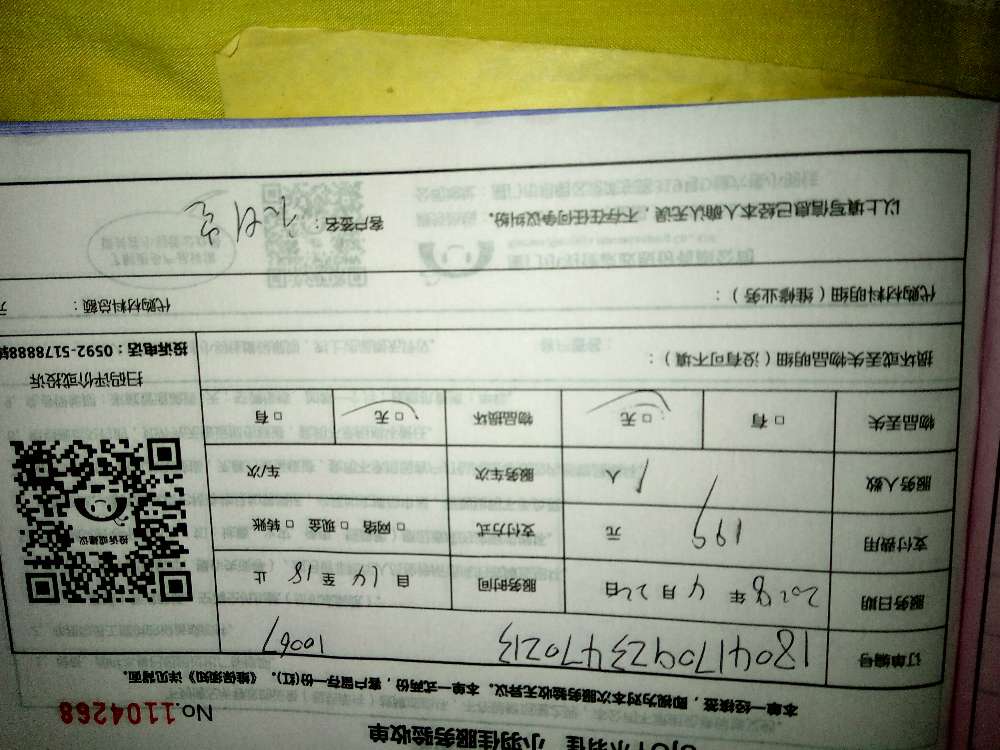 小羽佳 小羽佳服务验收单
No.1104268
本单一经核签，即视为对本次服务验收无异议。本单一式两份，客户留存一份(红)。《维保须知》详见背面。
订单编号 1804170923470213 10067
服务日期 2018年4月22日 服务时间 自14至18止
支付费用 199 元 支付方式 □网络 □现金 □转账
服务人数 1 人 服务车次 车/次
物品丢失 □有 □无 物品损坏 □无 □有
投诉或建议
扫码评价或投诉
投诉电话：0592-5178888转
损坏或丢失物品明细（没有可不填）：
代购材料明细（维修业务）： 代购材料总额： 元
以上填写信息已经本人确认无误，不存在任何争议纠纷。 客户签名：